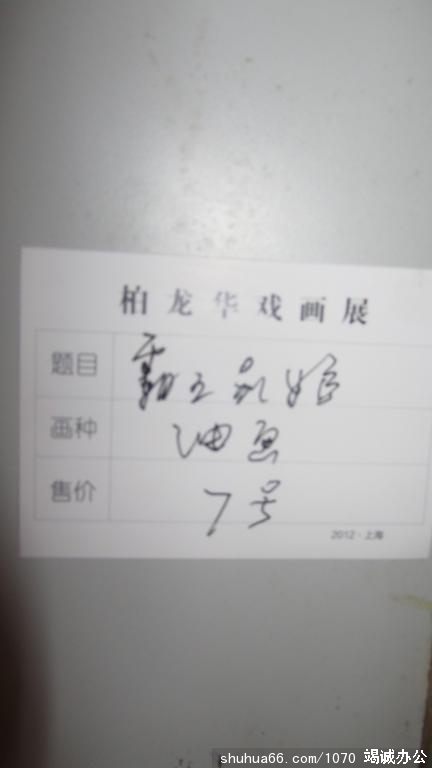 柏龙华戏画展
题目 霸王别姬
画种 油画
售价 7号
2012·上海
shuhua66.com/1070 竭诚办公